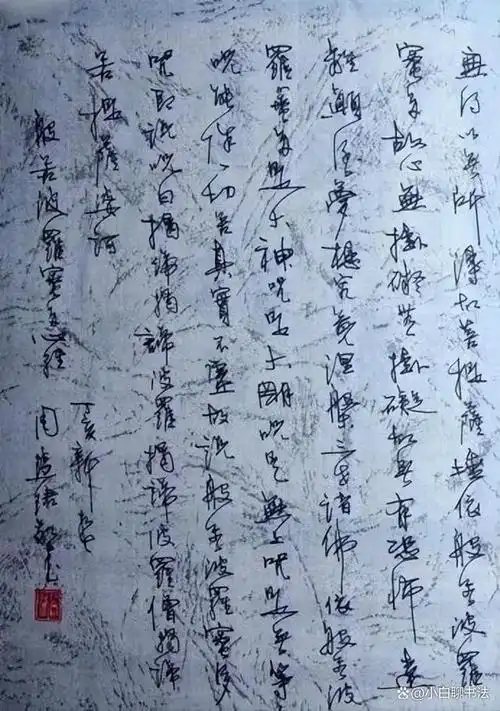 無得以無所得故菩提薩埵依般若波羅
蜜多故心無掛礙無掛礙故無有恐怖遠
離顛倒夢想究竟涅槃三世諸佛依般若波
羅蜜多是大神咒是大明咒是無上咒是無等
咒能除一切苦真實不虛故說般若波羅蜜多
咒即說咒曰揭諦揭諦波羅揭諦波羅僧揭諦
菩提薩婆訶
般若波羅蜜多心經
丁亥新春
周
@小白聊书法